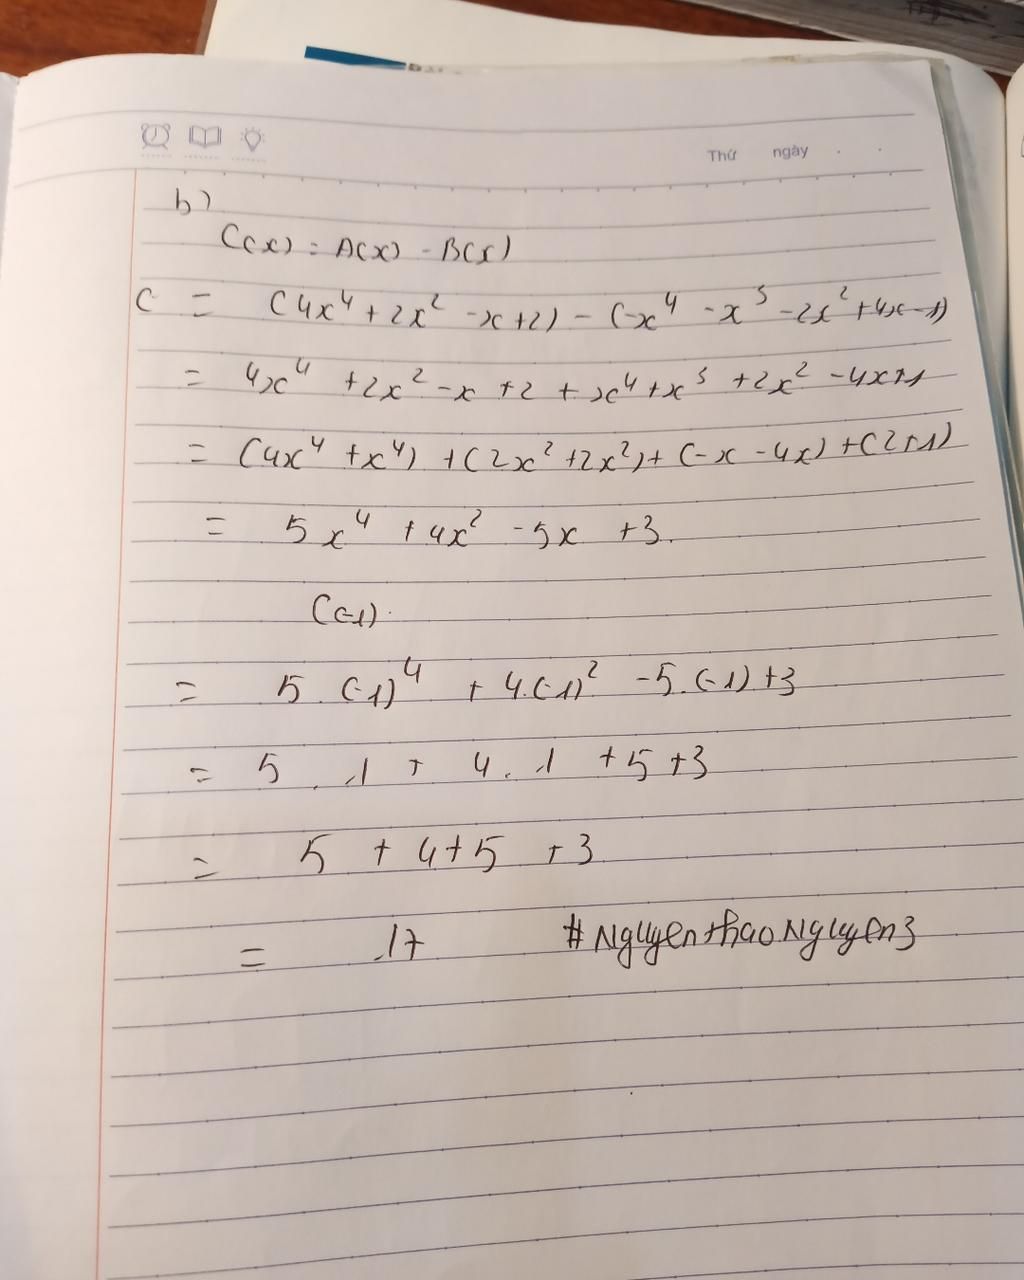 Thứ ngày . .
b)
C(x) = A(x) - B(x)
C = (4x⁴ + 2x² - x + 2) - (-x⁴ - x³ - 2x² + 4x - 1)
= 4x⁴ + 2x² - x + 2 + x⁴ + x³ + 2x² - 4x + 1
= (4x⁴ + x⁴) + (2x² + 2x²) + (-x - 4x) + (2 + 1)
= 5x⁴ + 4x² - 5x + 3.
C(-1).
= 5 . (-1)⁴ + 4.(-1)² - 5.(-1) + 3
= 5 . 1 + 4 . 1 + 5 + 3
= 5 + 4 + 5 + 3
= 17 #NguyenthaoNguyen3